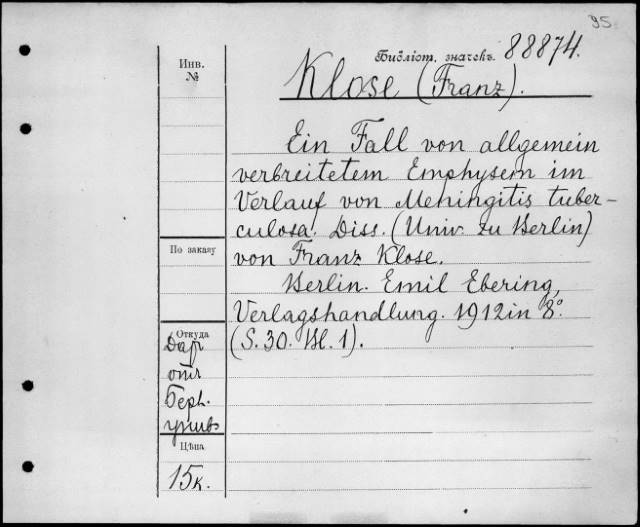 95
Инв.
№
Библіот. значекъ. 88874.
Klose (Franz).
Ein Fall von allgemein
verbreitetem Emphysem im
Verlauf von Meningitis tuber-
culosa. Diss. (Univ. zu Berlin)
von Franz Klose.
Berlin. Emil Ebering,
Verlagshandlung. 1912 in 8°.
(S. 30. Bl. 1).
По заказу
Откуда
Дар
отъ
Берл.
унив.
Цѣна
15к.